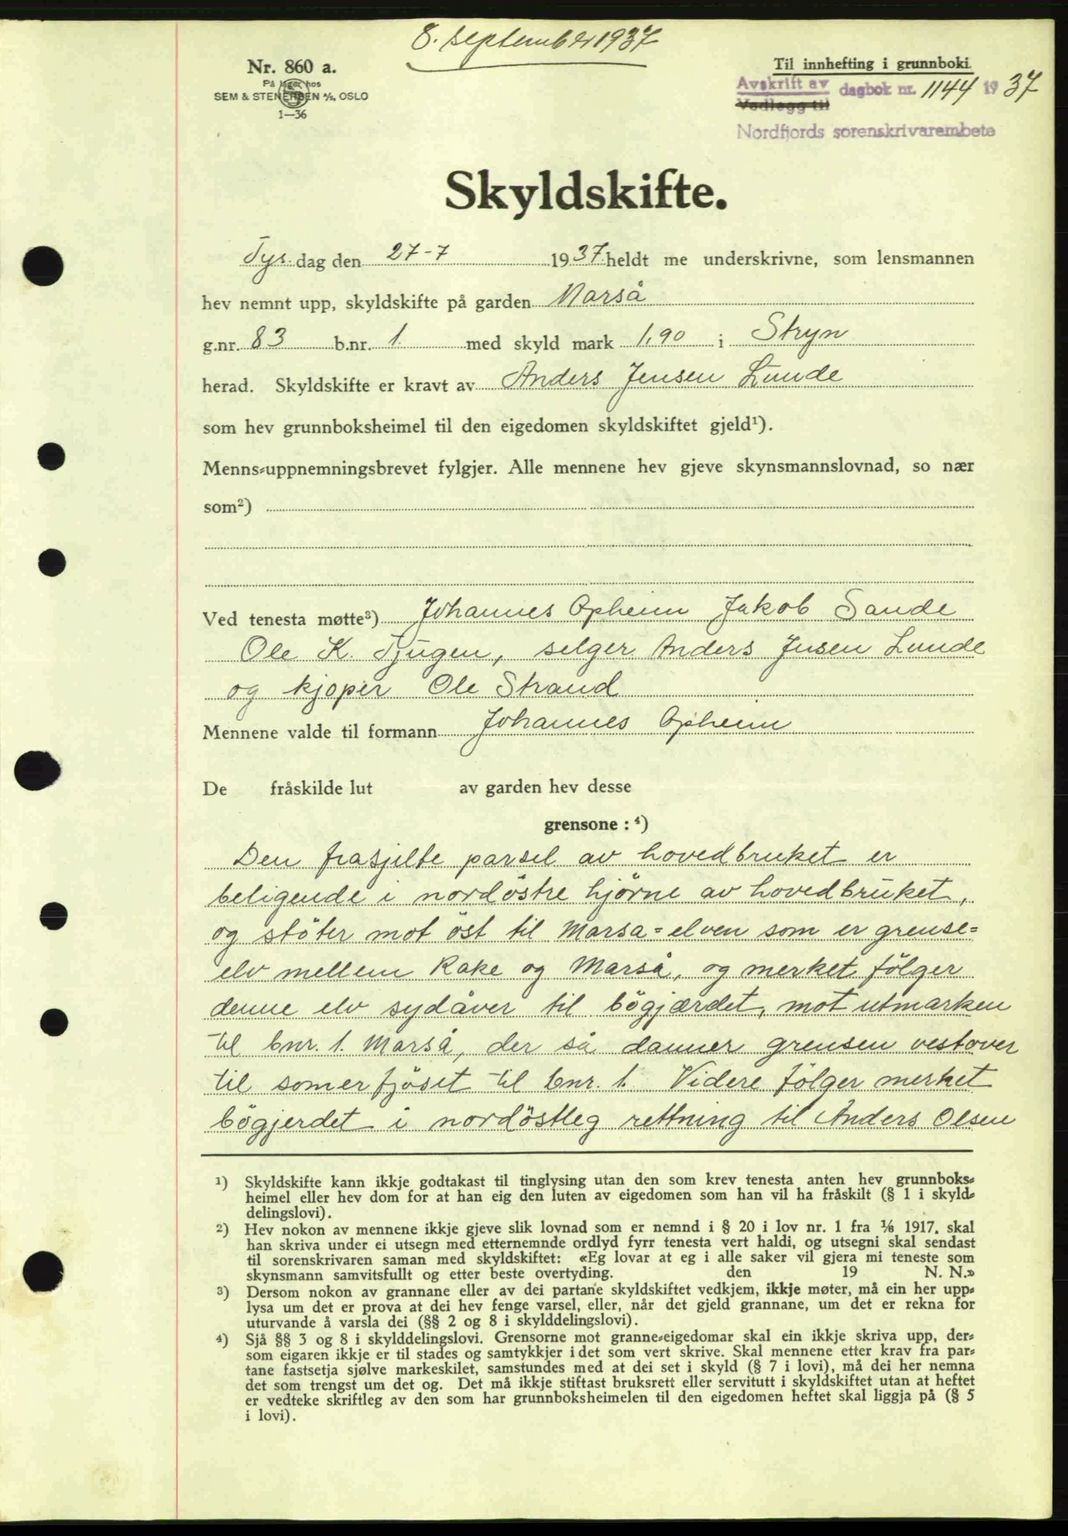 8. september 1937
Nr. 860 a.
På lager hos
SEM & STENERSEN A/S, OSLO
1—36
Til innhefting i grunnboki
Avskrift av
Vedlegg til
dagbok nr. 1144 1937
Nordfjords sorenskrivarembete
Skyldskifte.
Tysdag den 27-7 1937 heldt me underskrivne, som lensmannen
hev nemnt upp, skyldskifte på garden Marså
g.nr. 83 b.nr. 1 med skyld mark 1,90 i Stryn
herad. Skyldskifte er kravt av Anders Jensen Lunde
som hev grunnboksheimel til den eigedomen skyldskiftet gjeld¹).
Menns-uppnemningsbrevet fylgjer. Alle mennene hev gjeve skynsmannslovnad, so nær
som²)
Ved tenesta møtte³) Johannes Opheim Jakob Sande
Ole K. Tjugen, selger Anders Jensen Lunde
og kjøper Ole Strand
Mennene valde til formann Johannes Opheim
De fråskilde lut av garden hev desse
grensone : ⁴)
Den frasjilte parsel av hovedbruket er
beligende i nordöstre hjörne av hovedbruket,
og stöter mot öst til Marså=elven som er grense=
elv mellem Rake og Marså, og merket fölger
denne elv sydåver til bögjærdet, mot utmarken
til bnr. 1. Marså, der så danner grensen vestover
til somerfjöset til bnr. 1. Videre fölger merket
bögjerdet i nordöstleg rettning til Anders Olsen
¹) Skyldskifte kann ikkje godtakast til tinglysing utan den som krev tenesta anten hev grunnboks-
heimel eller hev dom for at han eig den luten av eigedomen som han vil ha fråskilt (§ 1 i skyld-
delingslovi).
²) Hev nokon av mennene ikkje gjeve slik lovnad som er nemnd i § 20 i lov nr. 1 fra 1/6 1917, skal
han skriva under ei utsegn med etternemnde ordlyd fyrr tenesta vert haldi, og utsegni skal sendast
til sorenskrivaren saman med skyldskiftet: «Eg lovar at eg i alle saker vil gjera mi teneste som
skynsmann samvitsfullt og etter beste overtyding. den 19 N. N.»
³) Dersom nokon av grannane eller av dei partane skyldskiftet vedkjem, ikkje møter, må ein her upp-
lysa um det er prova at dei hev fenge varsel, eller, når det gjeld grannane, um det er rekna for
uturvande å varsla dei (§§ 2 og 8 i skylddelingslovi).
⁴) Sjå §§ 3 og 8 i skylddelingslovi. Grensorne mot granne-eigedomar skal ein ikkje skriva upp, der-
som eigaren ikkje er til stades og samtykkjer i det som vert skrive. Skal mennene etter krav fra par-
tane fastsetja sjølve markeskilet, samstundes med at dei set i skyld (§ 7 i lovi), må dei her nemna
det som trengst um det og. Det må ikkje stiftast bruksrett eller servitutt i skyldskiftet utan at heftet
er vedteke skriftleg av den som har grunnboksheimelen til den eigedomen heftet skal liggja på (§ 5
i lovi).